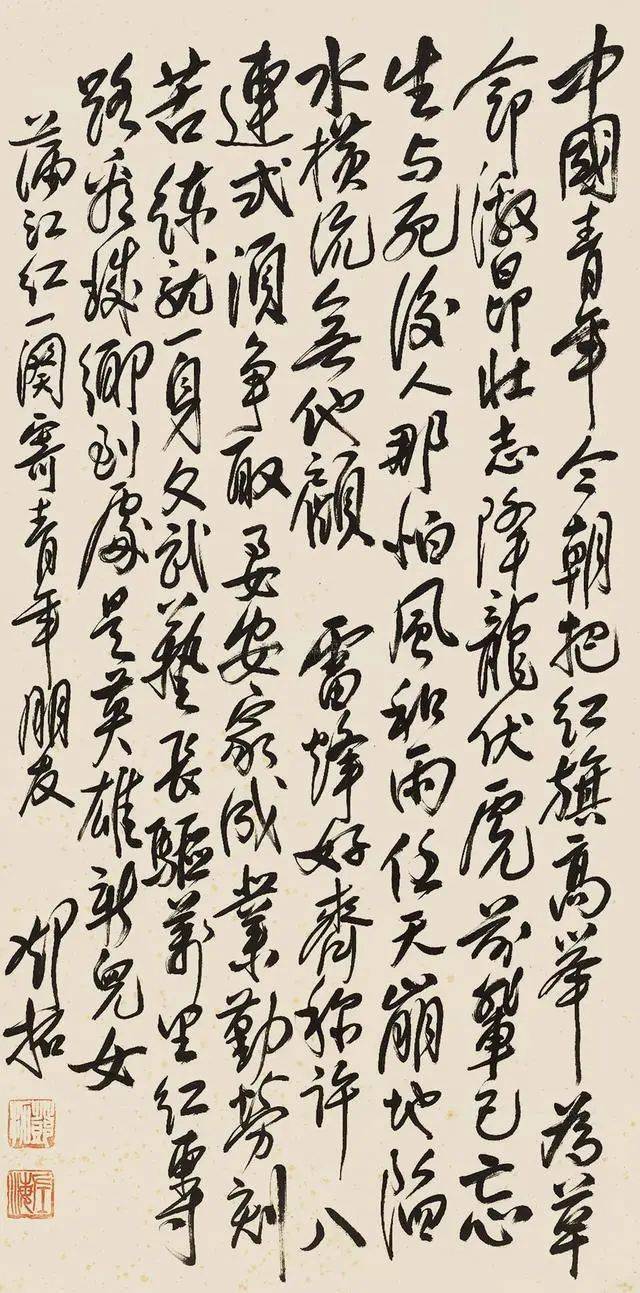 中國青年今朝把红旗高举為革
命激昂壮志降龍伏虎前輩已忘
生与死後人那怕風和雨任天崩地陷
水橫流無他顧 雷烽好齊称许八
連式須争取要安家成業勤勞刻
苦練就一身文武藝長驅萬里红專
路看城鄉到處是英雄新兒女
满江红一闋寄青年朋友
鄧拓
鄧拓
左海